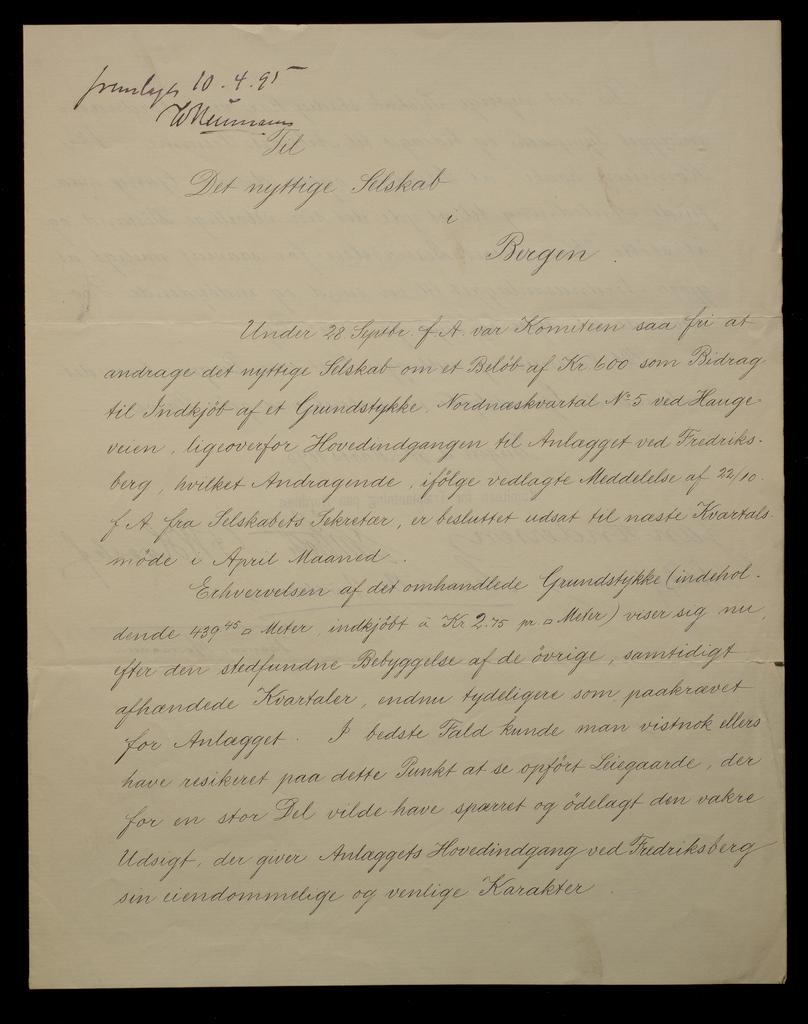 fremlagt 10.4.95
WNeumann
Til
Det nyttige Selskab
i
Bergen.
Under 28 Septbr. f.A. var Komiteen saa fri at
andrage det nyttige Selskab om et Beløb af Kr. 600 som Bidrag
til Indkjöb af et Grundstykke, Nordnæskvartal No 5 ved Hauge-
veien, ligeoverfor Hovedindgangen til Anlægget ved Fredriks-
berg, hvilket Andragende, ifölge vedlagte Meddelelse af 22/10.
f.A. fra Selskabets Sekretær, er besluttet udsat til næste Kvartals-
möde i April Maaned.
Erhvervelsen af det omhandlede Grundstykke (indehol-
dende 439,45 □ Meter, indkjöbt à Kr 2.75 pr. □ Meter) viser sig nu,
efter den stedfundne Bebyggelse af de övrige, samtidigt
afhændede Kvartaler, endnu tydeligere som paakrævet
for Anlægget. I bedste Fald kunde man vistnok ellers
have resikeret paa dette Punkt at se opfört Leiegaarde, der
for en stor Del vilde have spærret og ödelagt den vakre
Udsigt, der giver Anlæggets Hovedindgang ved Fredriksberg
sin eiendommelige og venlige Karakter.